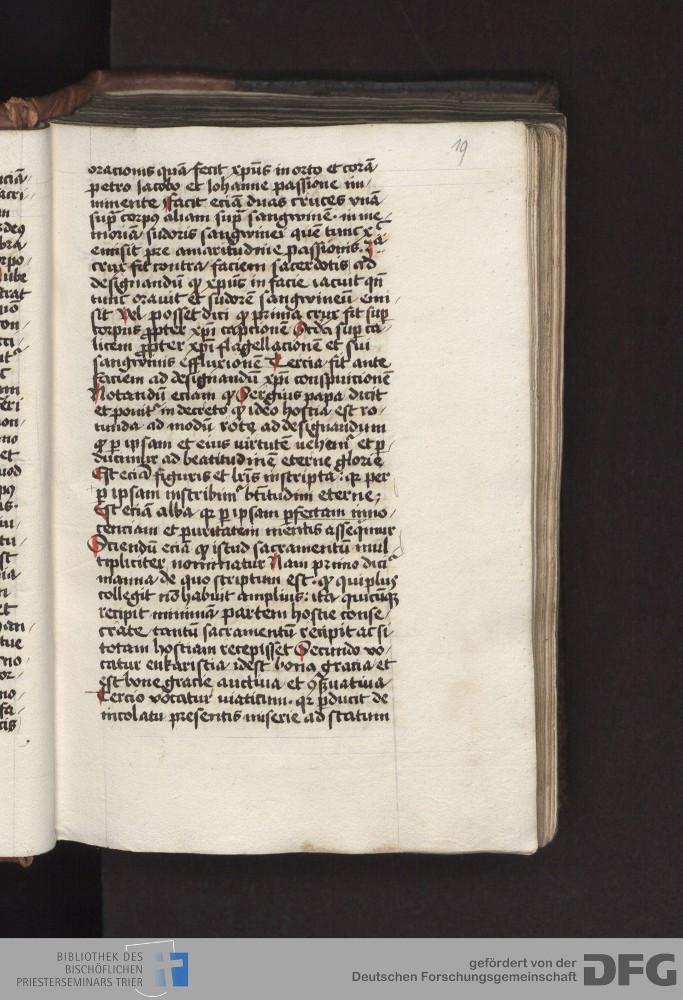 19
oracionis quā fecit xp̄us in orto et corā
petro iacobo et Iohanne passione im-
minente Facit eciā duas cruces vnā
sup̄ corpus aliam sup̄ sangwinē· in me
moriam sudoris sangwinei quē tunc
emisit pre amaritudine passionis· 3ᵃ
crux fit contra faciem sacerdotis ad
designandū qꝫ xp̄us in facie iacuit qn̄
tunc orauit et sudorē sangwineū emi-
sit Vel posset dici qꝫ prima crux fit sup̄
corpus ꝓpter xp̄i captionē Scd̄a sup̄ ca-
licem ꝓpter xp̄i flagellacionē et sui
sangwinis effluxionē Tercia fit ante
faciem ad designandū xp̄i conspuicionē
Notandū eciam qꝫ Sergius papa dicit
et ponit͛ in decreto qꝫ ideo hostia est ro-
tunda ad modū rote ad designandum
qꝫ ꝑ ipsam et eius virtutē uehem͛ et ꝑ-
ducimur ad beatitudinē eterne glorie
Est eciā figuris et lr̄is inscripta· qꝛ per
ꝑ ipsam inscribim͛ btītudini eterne;
Est eciā alba qꝛ ꝑ ipsam ꝑfectam inno-
cenciam et puritatem mentis assequimur
Sciendū eciā qꝫ istud sacramentū mul
tipliciter nominatur Nam primo dicit͛
manna de quo scriptum est· qꝫ qui plus
collegit nō habuit amplius· ita quicūqꝫ
recipit minimā partem hostie conse-
crate tantū sacramentū recipit ac si
totam hostiam recepisset Secundo vo-
catur eukaristia idest bona gracia et
est bone gracie auctiua et ꝯseruatiua
Tercio vocatur viaticum· qꝛ ꝑducit de
incolatu presentis miserie ad statum
BIBLIOTHEK DES
BISCHÖFLICHEN
PRIESTERSEMINARS TRIER
gefördert von der
Deutschen Forschungsgemeinschaft
DFG